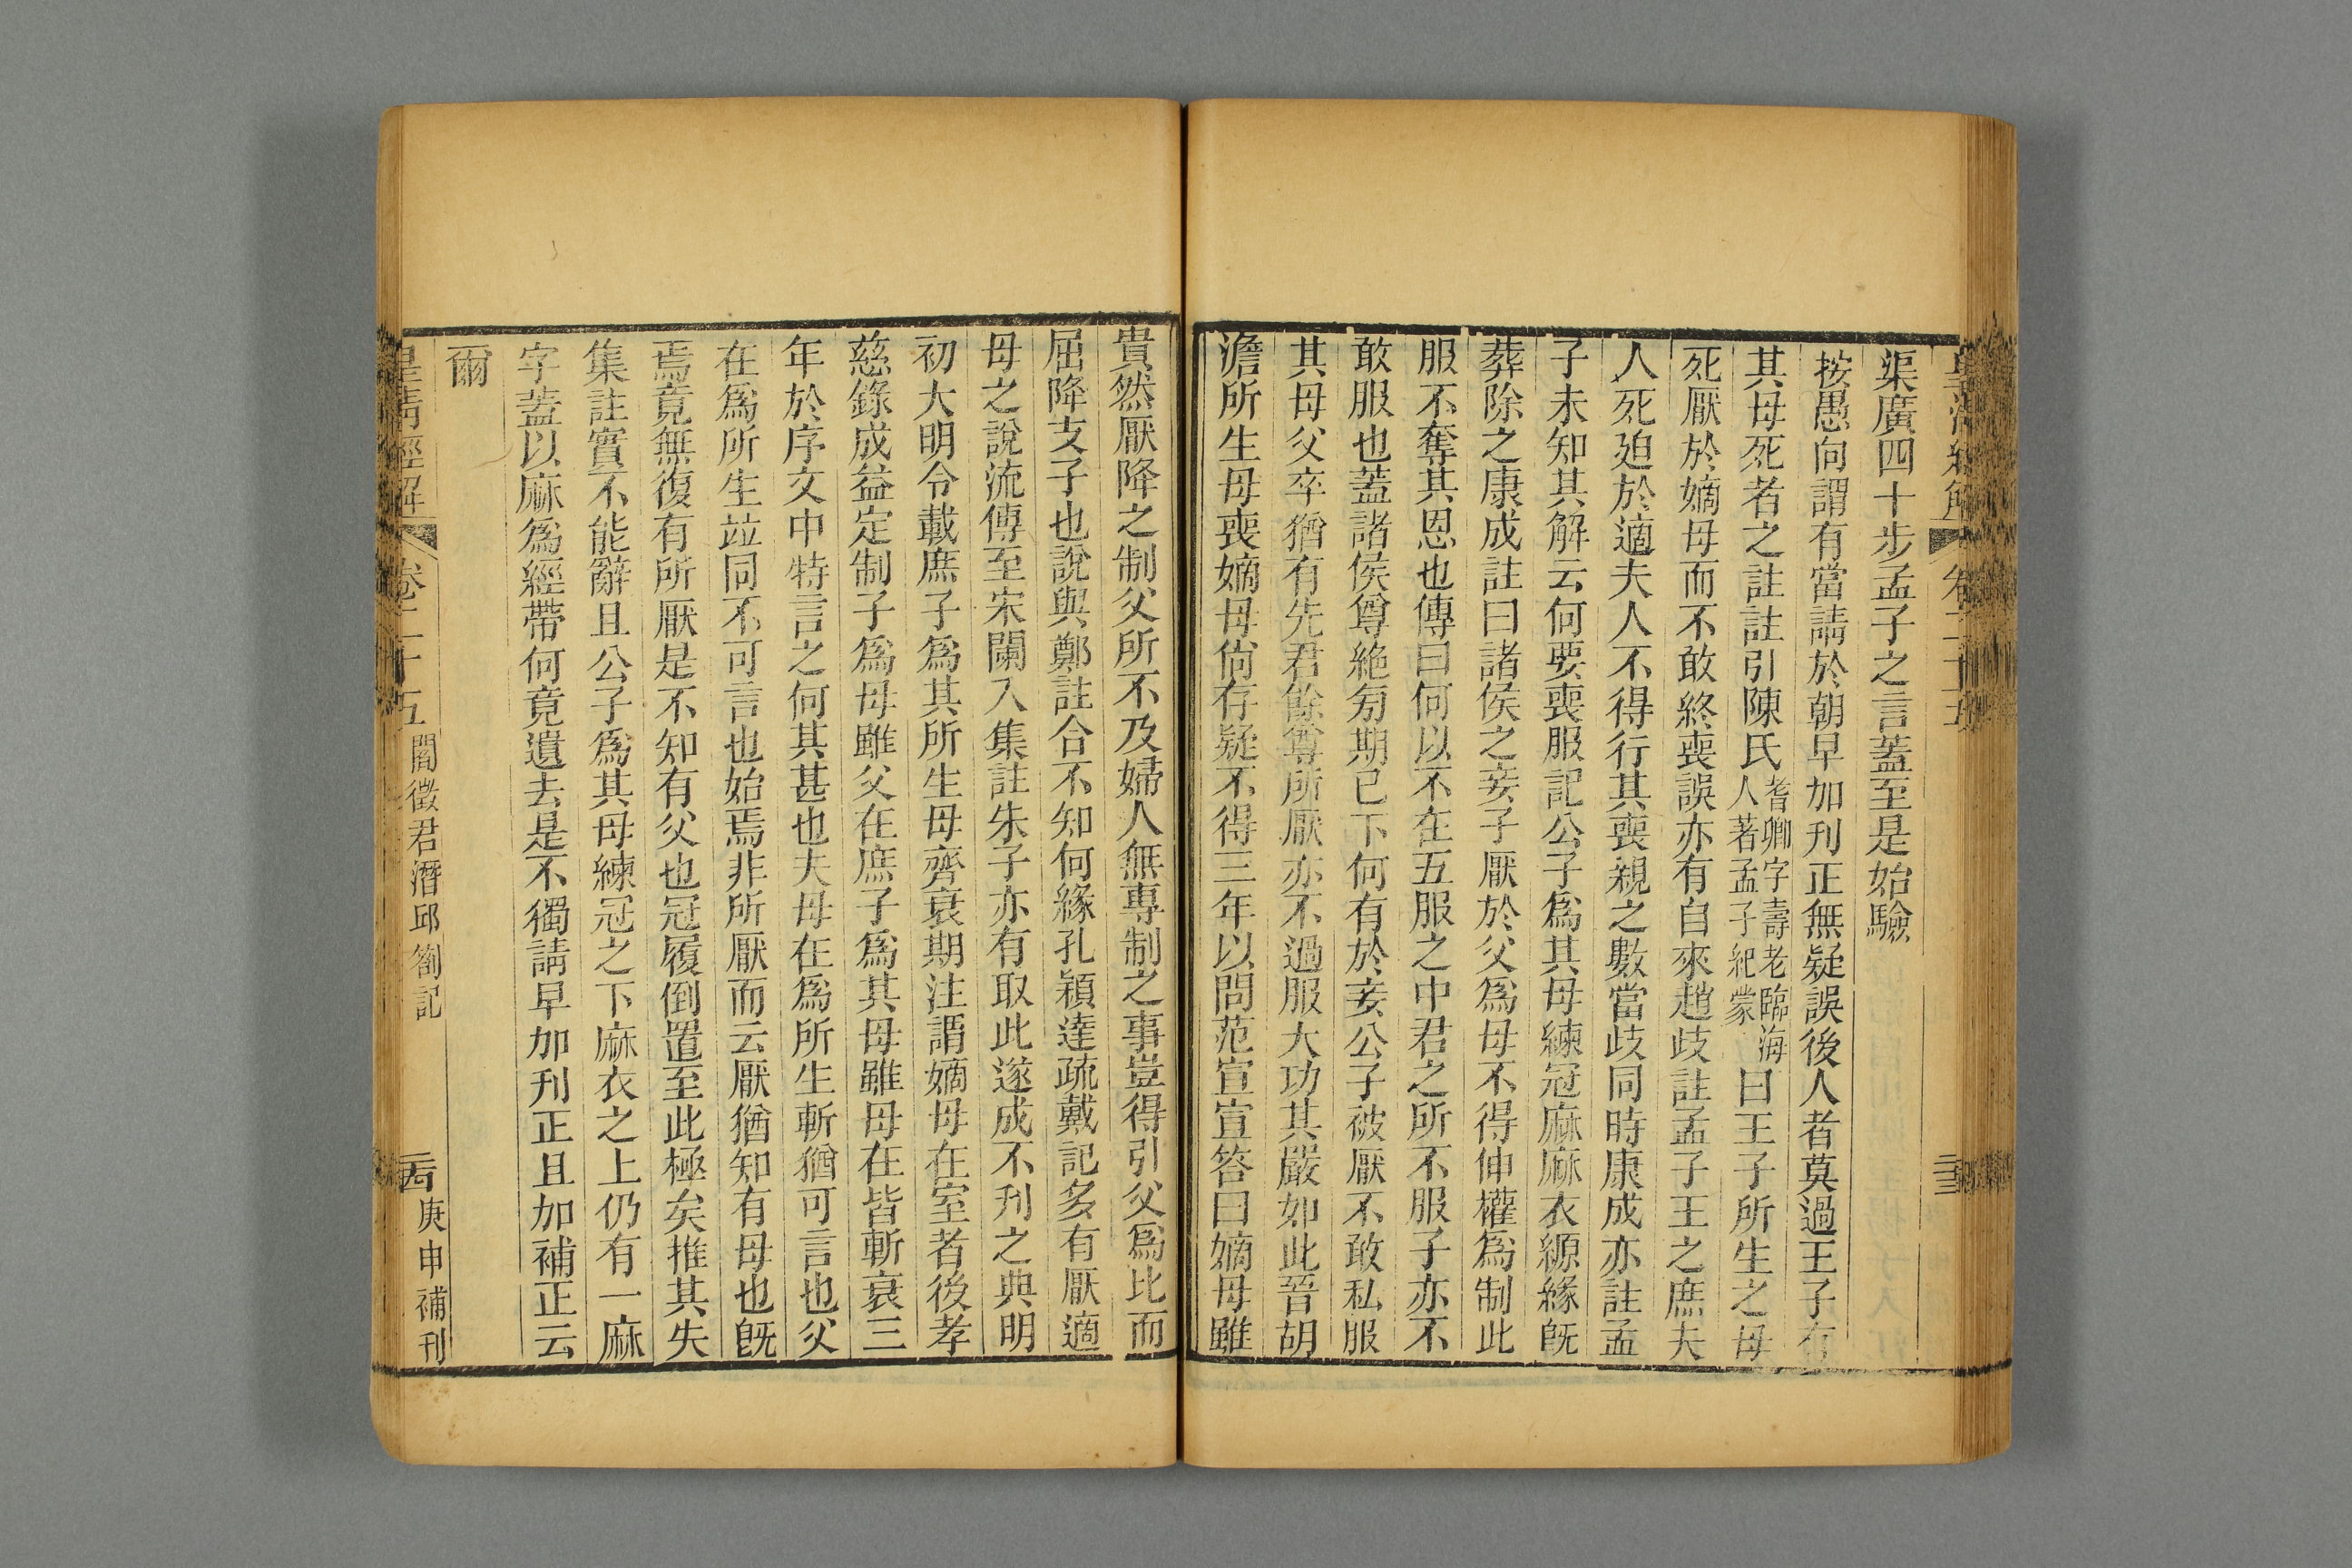 渠廣四十步孟子之言蓋至是始驗
按愚向謂有當請於朝早加刊正無疑誤後人者莫過王子有
其母死者之註註引陳氏耆卿字壽老臨海人著孟子紀蒙曰王子所生之母
死厭於嫡母而不敢終喪誤亦有自來趙歧註孟子王之庶夫
人死迫於適夫人不得行其喪親之數當歧同時康成亦註孟
子未知其解云何要喪服記公子為其母練冠麻麻衣縓緣既
葬除之康成註曰諸侯之妾子厭於父為母不得伸權為制此
服不奪其恩也傳曰何以不在五服之中君之所不服子亦不
敢服也蓋諸侯尊絶旁期已下何有於妾公子被厭不敢私服
其母父卒猶有先君餘尊所厭亦不過服大功其嚴如此晉胡
澹所生母喪嫡母尙存疑不得三年以問范宣宣答曰嫡母雖
貴然厭降之制父所不及婦人無專制之事豈得引父爲比而
屈降支子也說與鄭註合不知何緣孔穎達疏戴記多有厭適
母之說流傳至宋闌入集註朱子亦有取此遂成不刊之典明
初大明令載庶子爲其所生母齊衰期注謂嫡母在室者後孝
慈錄成益定制子爲母雖父在庶子爲其母雖母在皆斬衰三
年於序文中特言之何其甚也夫母在爲所生斬猶可言也父
在爲所生竝同不可言也始焉非所厭而云厭猶知有母也旣
焉竟無復有所厭是不知有父也冠履倒置至此極矣推其失
集註實不能辭且公子爲其母練冠之下麻衣之上仍有一麻
字蓋以麻爲經帶何竟遺去是不獨請早加刊正且加補正云
爾
皇清經解 卷二十五 閻徵君潛邱劄記 庚申補刊